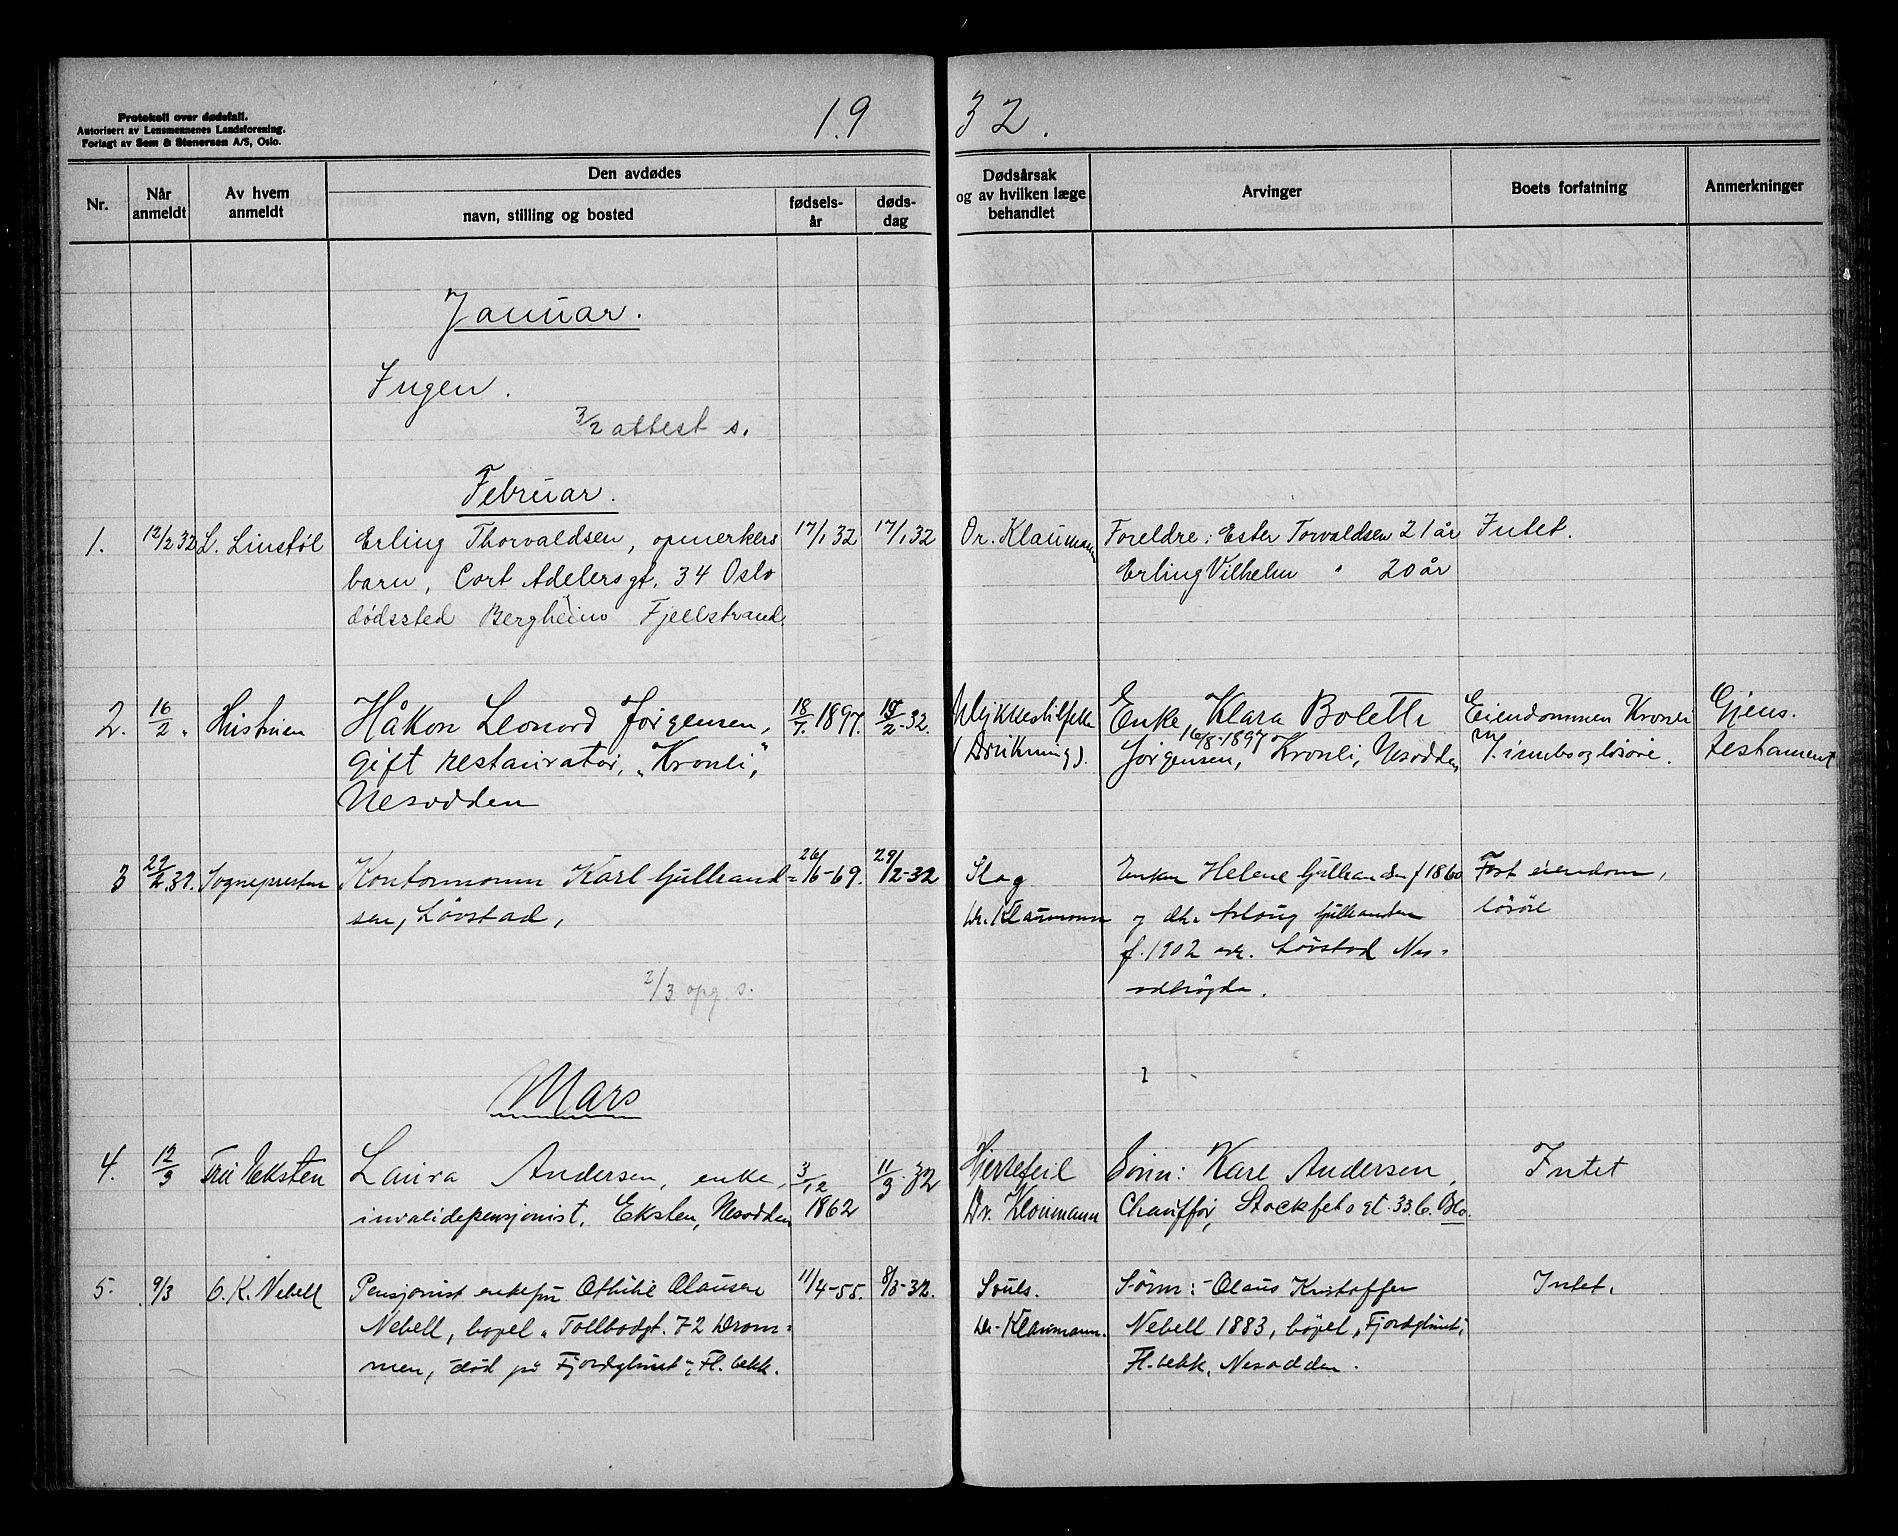 Protokoll over dødsfall.
Autorisert av Lensmennenes Landsforening.
Forlagt av Sem & Stenersen A/S, Oslo.
19 32.
Nr.
Når anmeldt
Av hvem anmeldt
Den avdødes
navn, stilling og bosted
fødsels-år
døds-dag
Dødsårsak og av hvilken læge behandlet
Arvinger
Boets forfatning
Anmerkninger
Januar.
Ingen.
3/2 attest s.
Februar.
1. 12/2 32 L. Linstøl Erling Thorvaldsen, opmerkers 17/1 32 17/1 32 Dr. Klaumann Foreldre: Ester Torvaldsen 21 år Intet.
barn, Cort Adelersgt. 34 Oslo Erling Vilhelm " 20 år
dødssted Bergheim Fjellstrand.
2. 16/2 " Hustruen Håkon Leonord Jørgensen, 18/7. 1897. 2-32. Ulykkestilfelle Enke, Klara Bolette Eiendommen Kronli Gjens.
gift restauratør, "Kronli", (Drukning). Jørgensen, 16/8-1897 Kronli, Nesodden m/ innbo og løsøre. testament
Nesodden
3 29/2 32. Sognepresten Kontormann Karl Gulbrand= 26/6-69. 29/2-32 Slag Enken Helene Gulbrandsen f 1860 Fast eiendom,
sen, Løvstad, Dr. Klaumann og dtr. Aslaug Gulbrandsen løsøre
f. 1902 adr. Løvstad Nes=
odbygda.
2/3 opg s.
Mars
4. 12/3 Fru Eksten Laura Andersen, enke, 3/12 1862 11/3-32 Hjertefeil Sønn: Kare Andersen, Intet
invalidepensjonist. Eksten, Nesodden Dr. Klaumann Chauffør, Stockfets gt. 33.b. Oslo.
5. 9/3 O. K. Nebell Pensjonist enkefru Othilie Clausen 11/4-55. 8/3-32. Dr. Klaumann. Sønn:- Claus Kristoffer Intet.
Nebell, bopel " Tollbodgt. 72 Dram= Nebell 1883, bopel "Fjordglimt",
men, død på Fjordglimt", Fl. bekk. Fl. bekk, Nesodden.